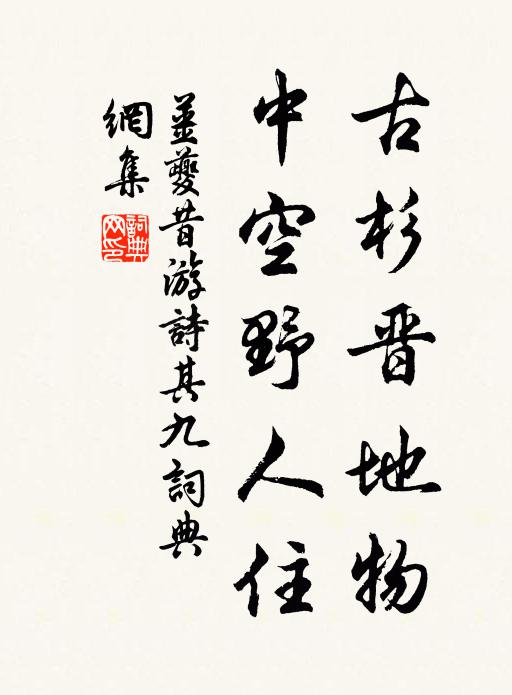 古杉晋地物
中空野人住
姜夔昔游詩其九詞典
網集
詞典
网印